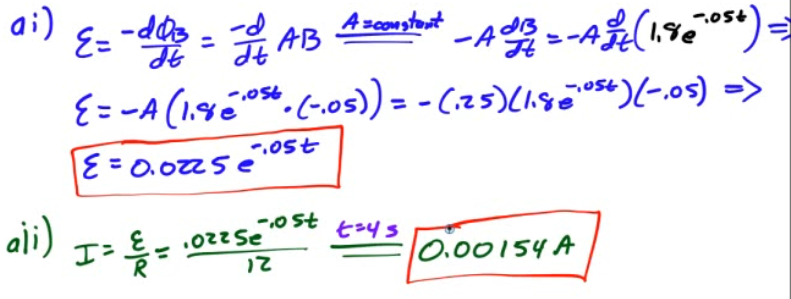 ai) ℰ = -dΦB/dt = -d/dt AB =(A=constant)= -A dB/dt = -A d/dt(1.8e^-.05t) ⇒
ℰ = -A(1.8e^-.05t · (-.05)) = -(.25)(1.8e^-.05t)(-.05) ⇒
ℰ = 0.0225e^-.05t
aii) I = ℰ/R = .0225e^-.05t/12 =(t=4s)= 0.00154 A